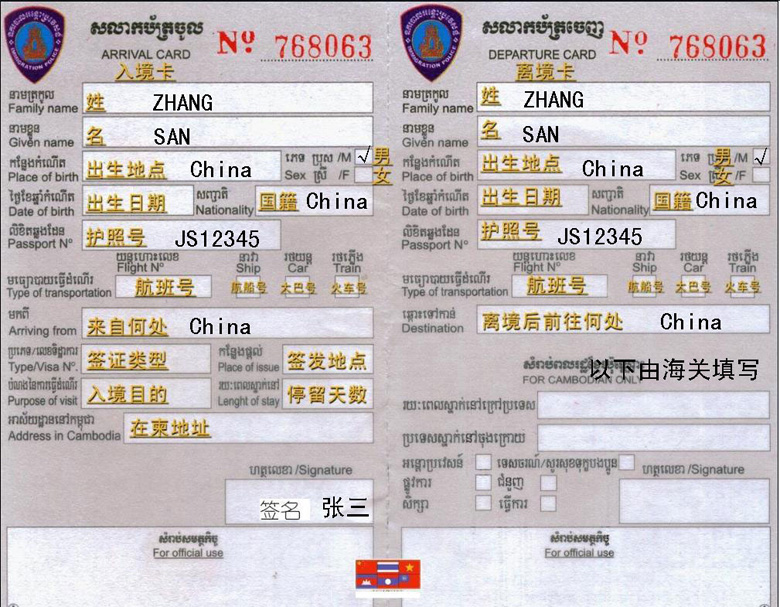 សលាកប័ត្រចូល
ARRIVAL CARD
入境卡
Nº 768063
នាមត្រកូល
Family name 姓 ZHANG
នាមខ្លួន
Given name 名 SAN
កន្លែងកំណើត ភេទ ប្រុស /M √ 男
Place of birth 出生地点 China Sex ស្រី /F 女
ថ្ងៃខែឆ្នាំកំណើត សញ្ជាតិ
Date of birth 出生日期 Nationality 国籍 China
លិខិតឆ្លងដែន
Passport Nº 护照号 JS12345
យន្តហោះលេខ នាវា រថយន្ត រថភ្លើង
Flight Nº Ship Car Train
មធ្យោបាយធ្វើដំណើរ
Type of transportation 航班号 航船号 大巴号 火车号
មកពី
Arriving from 来自何处 China
ប្រភេទ/លេខទិដ្ឋាការ កន្លែងផ្តល់
Type/Visa Nº. 签证类型 Place of issue 签发地点
បំណងនៃការធ្វើដំណើរ រយៈពេលស្នាក់នៅ
Purpose of visit 入境目的 Lenght of stay 停留天数
អាស័យដ្ឋាននៅកម្ពុជា
Address in Cambodia 在柬地址
ហត្ថលេខា /Signature
签名 张三
សំរាប់សមត្ថកិច្ច
For official use
សលាកប័ត្រចេញ
DEPARTURE CARD
离境卡
Nº 768063
នាមត្រកូល
Family name 姓 ZHANG
នាមខ្លួន
Given name 名 SAN
កន្លែងកំណើត ភេទ ប្រុស /M √ 男
Place of birth 出生地点 China Sex ស្រី /F 女
ថ្ងៃខែឆ្នាំកំណើត សញ្ជាតិ
Date of birth 出生日期 Nationality 国籍 China
លិខិតឆ្លងដែន
Passport Nº 护照号 JS12345
យន្តហោះលេខ នាវា រថយន្ត រថភ្លើង
Flight Nº Ship Car Train
មធ្យោបាយធ្វើដំណើរ
Type of transportation 航班号 航船号 大巴号 火车号
ឆ្ពោះទៅកាន់
Destination 离境后前往何处 China
以下由海关填写
FOR CAMBODIAN ONLY
រយៈពេលស្នាក់នៅក្រៅប្រទេស
ប្រទេសស្នាក់នៅចុងក្រោយ
អន្តោប្រវេសន៍ ទេសចរណ៍/សួរសុខទុក្ខបងប្អូន ហត្ថលេខា /Signature
ផ្លូវការ ជំនួញ
សិក្សា ធ្វើការ
សំរាប់សមត្ថកិច្ច
For official use